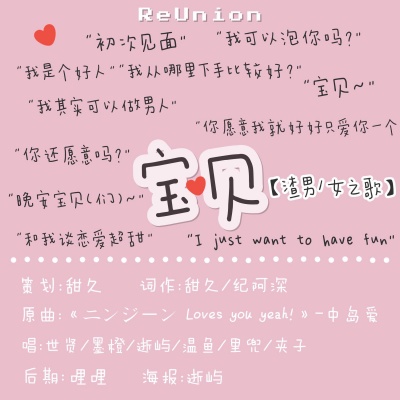 ReUnion
"初次见面" "我可以泡你吗?"
"我是个好人" "我从哪里下手比较好?"
"宝贝~"
"我其实可以做男人"
"你愿意我就好好只爱你一个
"你还愿意吗?"
宝贝
【渣男/女之歌】
"晚安宝贝(们)~"
"和我谈恋爱超甜" "I just want to have fun"
策划:甜久 词作:甜久/纪阿深
原曲:《ニンジーン Loves you yeah!》-中岛爱
唱:世贤/墨橙/逝屿/温鱼/里兜/夹子
后期:哩哩 海报:逝屿